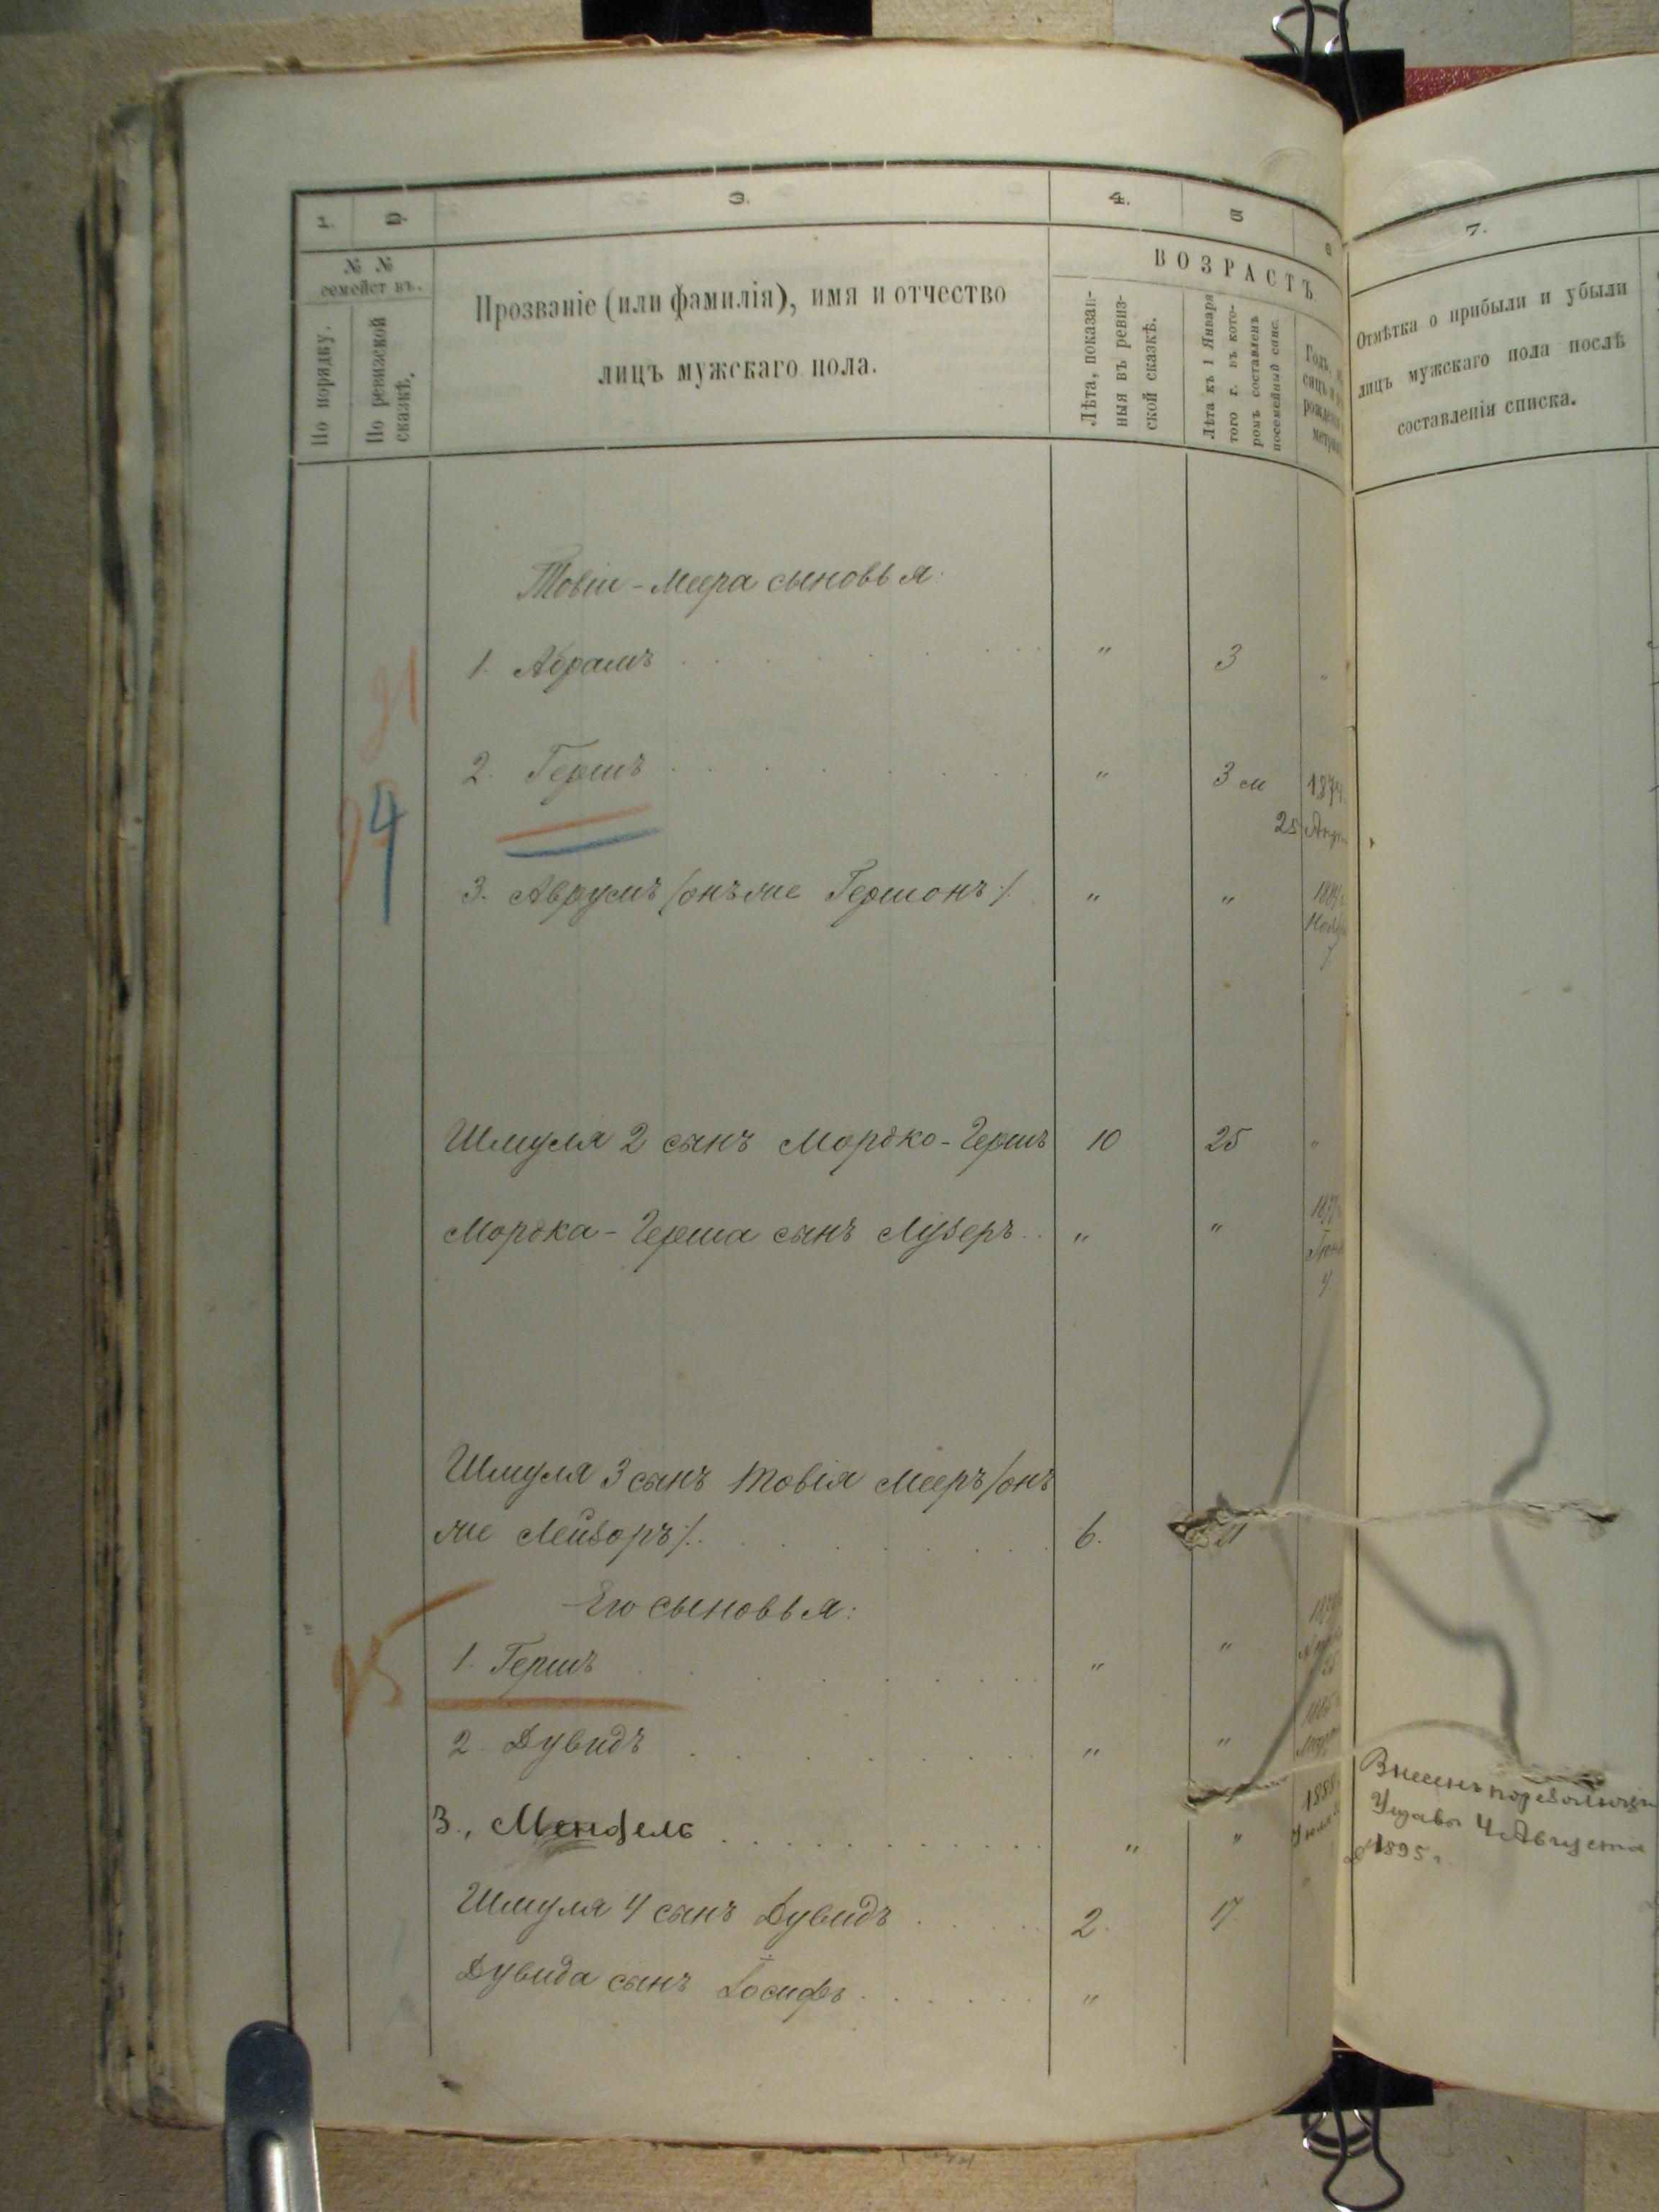 1. 2. 3. 4. 5 6
№ № семействъ.
По порядку.
По ревизской сказкѣ.
Прозваніе (или фамилія), имя и отчество
лицъ мужскаго пола.
ВОЗРАСТЪ.
Лѣта, показан-
ныя въ ревиз-
ской сказкѣ.
Лѣта къ 1 Января
того г. въ кото-
ромъ составленъ
посемейный спис.
7.
Отмѣтка о прибыли и убыли
лицъ мужскаго пола послѣ
составленія списка.
Товіи-Меера сыновья:
21
1. Абрамъ " 3 "
2. Гершъ " 3 м 1874
25 Апр
24
3. Аврумъ /:онъ же Гершонъ:/ " "
Шмуля 2 сынъ Мордко-Гершъ 10 25 "
Мордка-Герша сынъ Лузеръ " "
Шмуля 3 сынъ Товія Мееръ /:онъ
же Лейзоръ:/. 6. 21
Его сыновья:
25
1. Гершъ " "
2. Дувидъ " "
3., Мендель " " 1888
Внесенъ по резолюціи
Управы 4 Августа
1895 г.
Шмуля 4 сынъ Дувидъ 2. 17
Дувида сынъ Іосифъ "